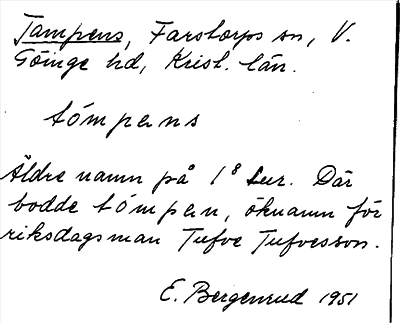 Tampens, Farstorps sn, V.
Göinge hd, Krist. län.
támpens
Äldre namn på 1⁸ Lur. Där
bodde támpen, öknamn för
riksdagsman Tufve Tufvesson.
E. Bergenrud 1951